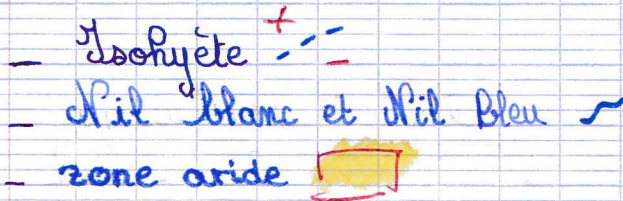 - Isohyète + --- -
- Nil blanc et Nil Bleu
- zone aride